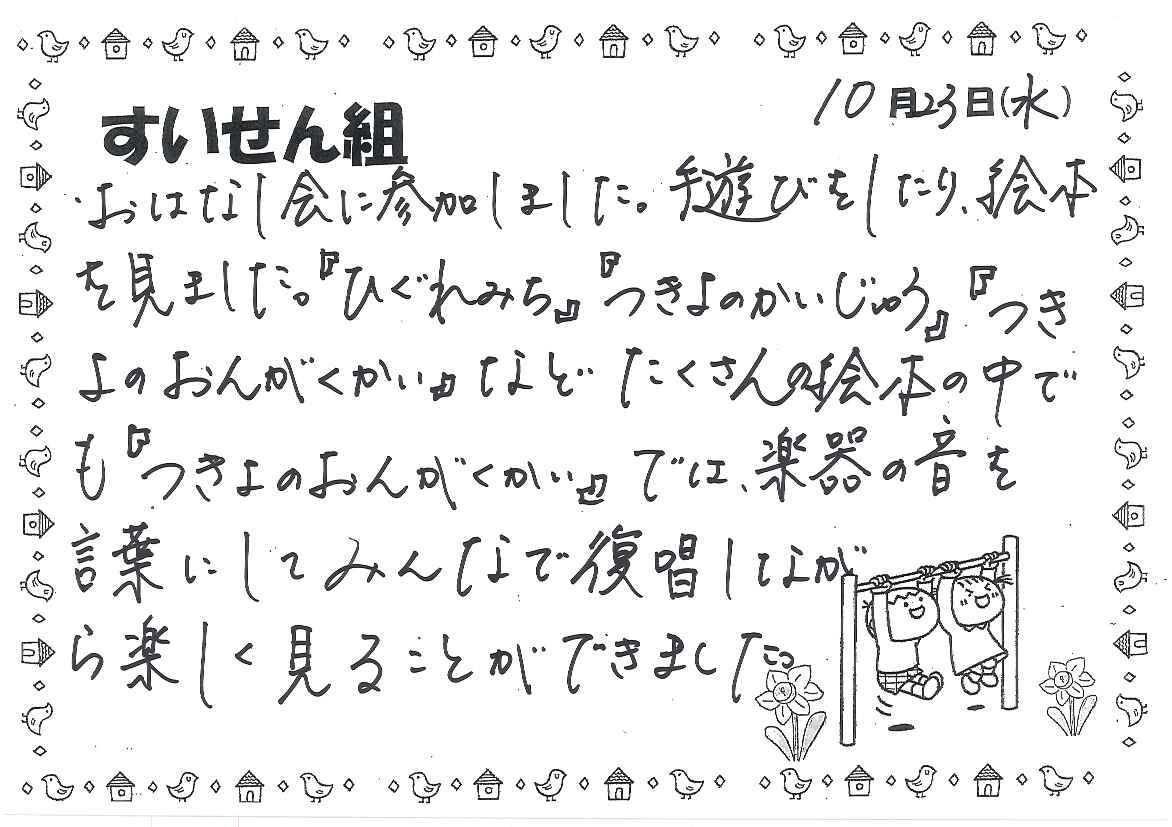 10月23日(水)
すいせん組
・おはなし会に参加しました。手遊びをしたり、絵本
を見ました。『ひぐれみち』『つきよのかいじゅう』『つき
よのおんがくかい』などたくさんの絵本の中で
も『つきよのおんがくかい』では、楽器の音を
言葉にしてみんなで復唱しなが
ら楽しく見ることができました。